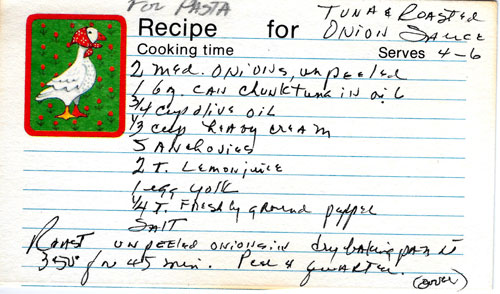 For PASTA
Recipe for TUNA & ROASTED ONION SAUCE
Cooking time Serves 4-6
2 med. ONIONS, unpeeled
1 6g. CAN chunk tuna in oil
3/4 cup olive oil
1/3 cup heavy cream
5 Anchovies
2 T. Lemon juice
1 egg yolk
1/4 T. Freshly ground pepper
SALT
Roast unpeeled onions in dry baking pan at
350° for 45 min. Peel & quarter.
(over)